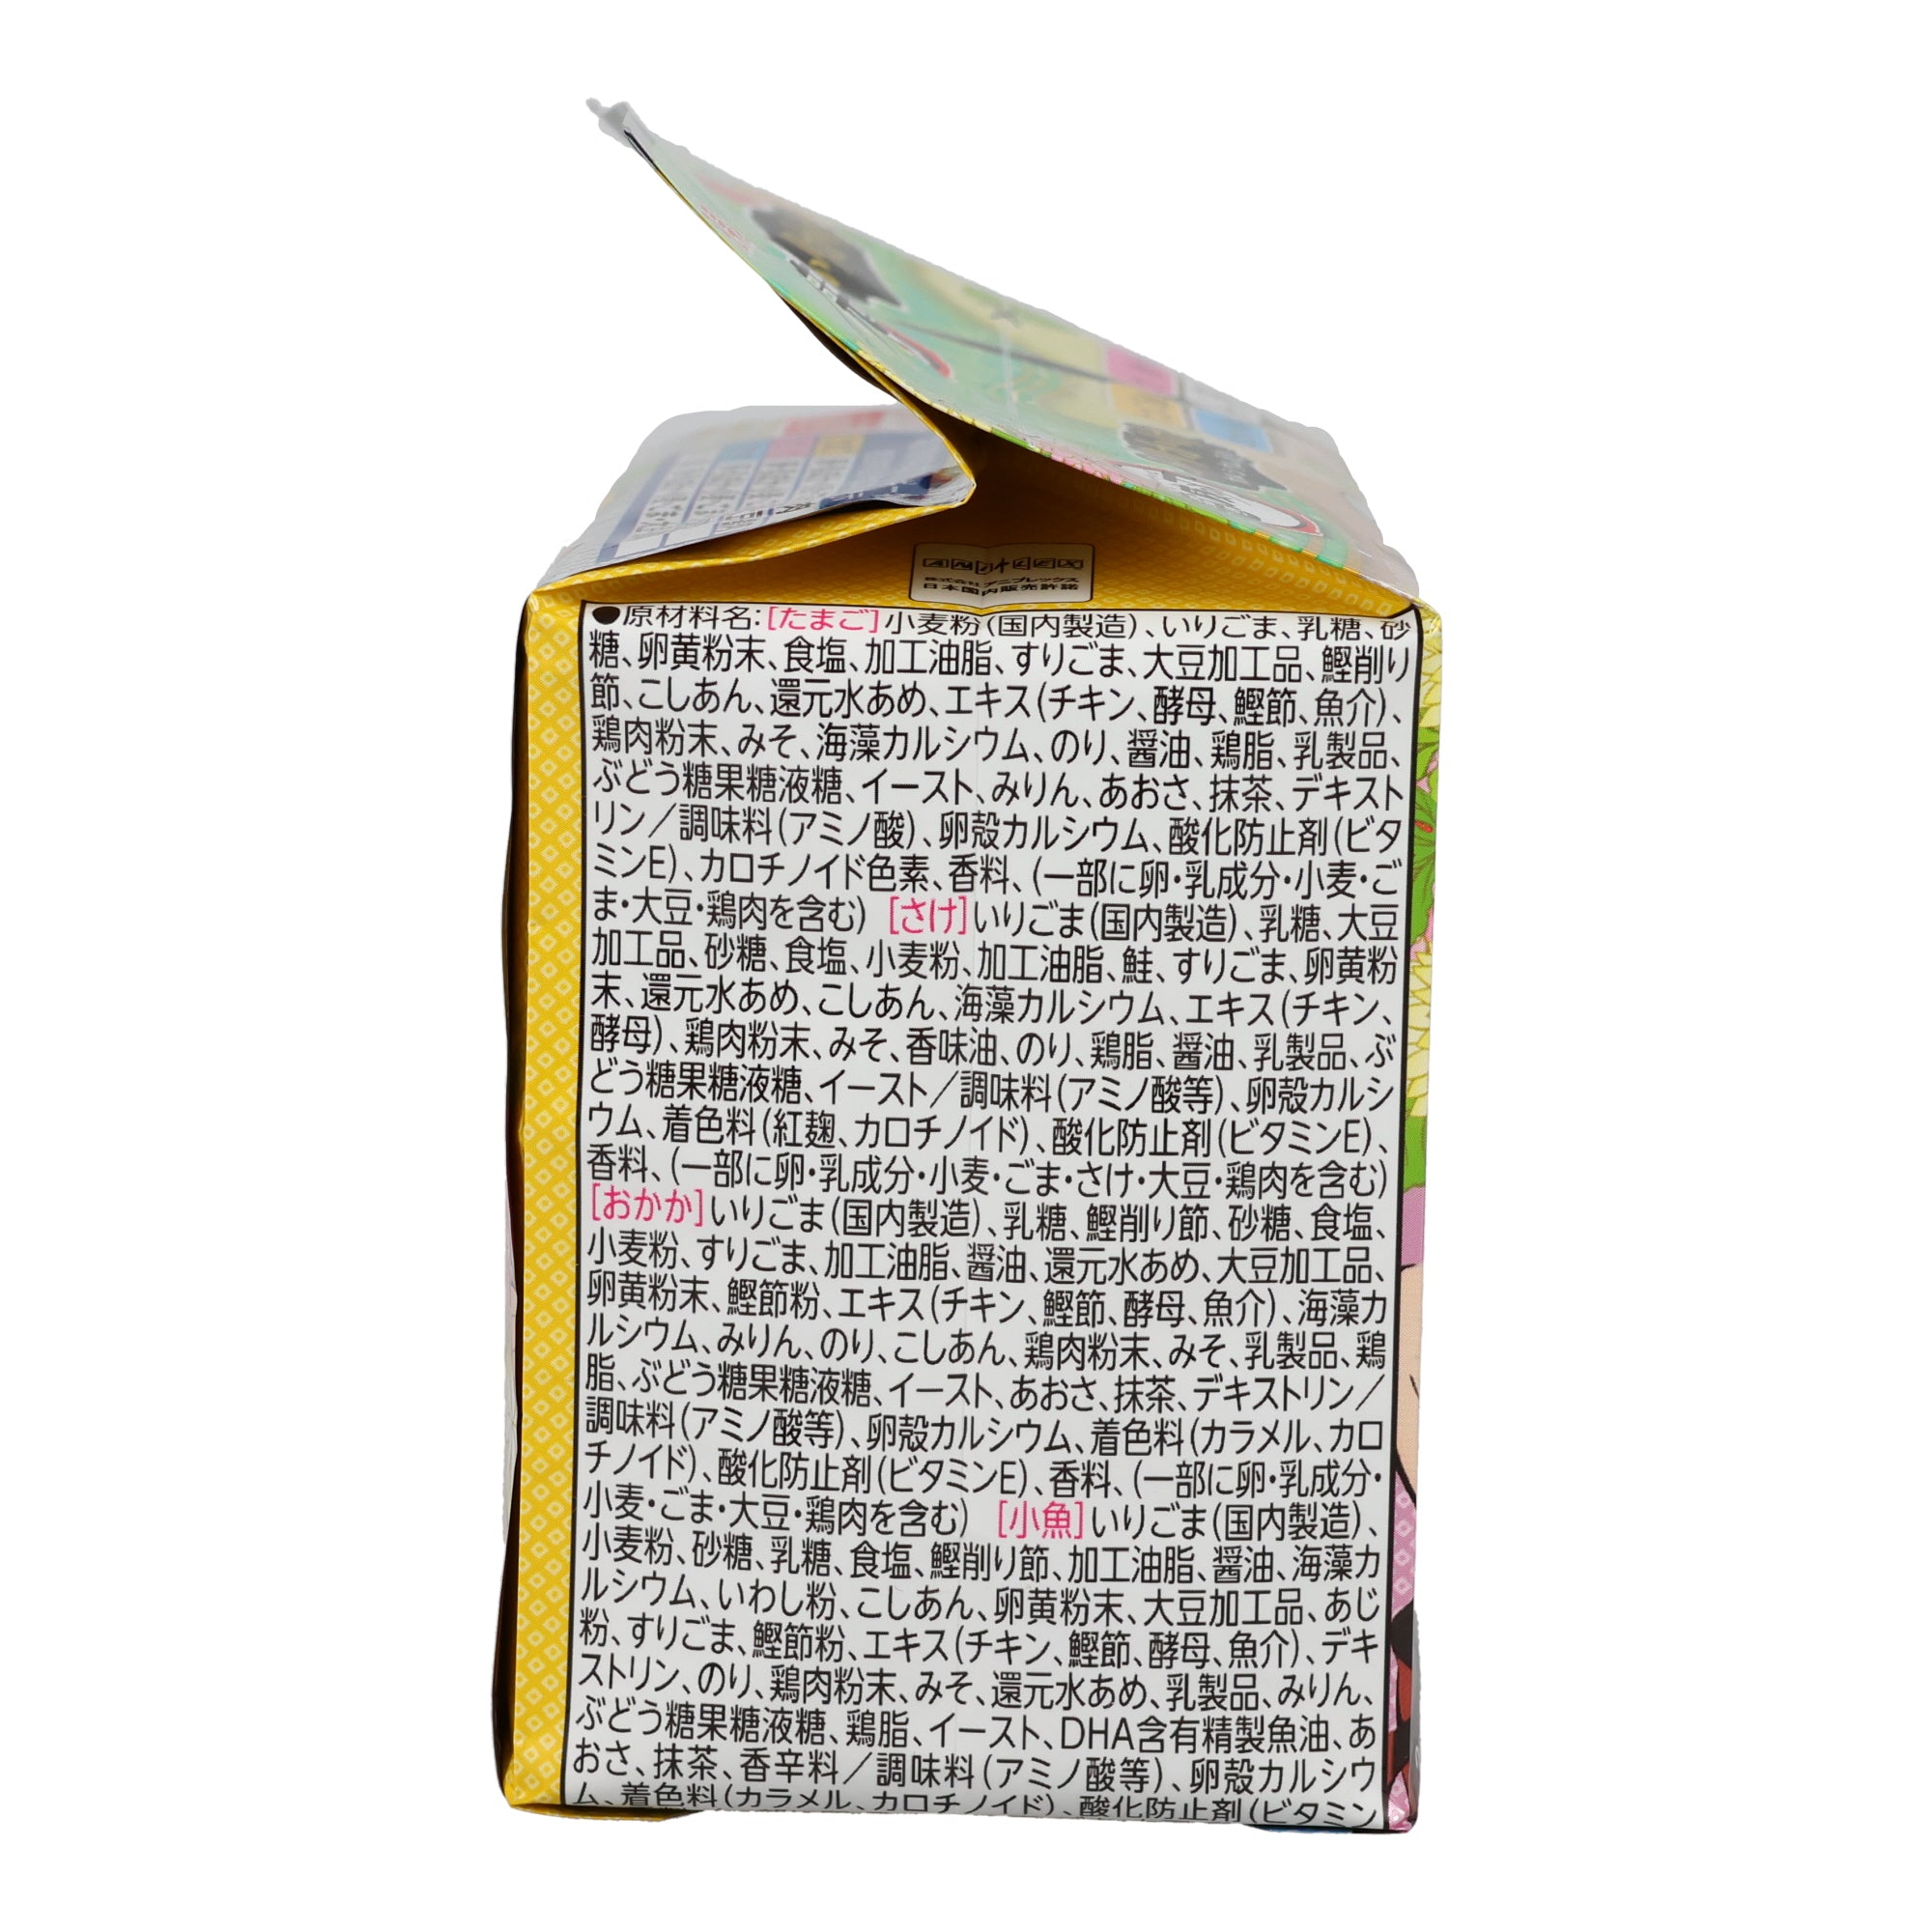 ANIPLEX
株式会社アニプレックス
日本国内販売許諾
●原材料名:[たまご]小麦粉(国内製造)、いりごま、乳糖、砂
糖、卵黄粉末、食塩、加工油脂、すりごま、大豆加工品、鰹削り
節、こしあん、還元水あめ、エキス(チキン、酵母、鰹節、魚介)、
鶏肉粉末、みそ、海藻カルシウム、のり、醤油、鶏脂、乳製品、
ぶどう糖果糖液糖、イースト、みりん、あおさ、抹茶、デキスト
リン/調味料(アミノ酸)、卵殻カルシウム、酸化防止剤(ビタ
ミンE)、カロチノイド色素、香料、(一部に卵・乳成分・小麦・ご
ま・大豆・鶏肉を含む) [さけ]いりごま(国内製造)、乳糖、大豆
加工品、砂糖、食塩、小麦粉、加工油脂、鮭、すりごま、卵黄粉
末、還元水あめ、こしあん、海藻カルシウム、エキス(チキン、
酵母)、鶏肉粉末、みそ、香味油、のり、鶏脂、醤油、乳製品、ぶ
どう糖果糖液糖、イースト/調味料(アミノ酸等)、卵殻カルシ
ウム、着色料(紅麹、カロチノイド)、酸化防止剤(ビタミンE)、
香料、(一部に卵・乳成分・小麦・ごま・さけ・大豆・鶏肉を含む)
[おかか]いりごま(国内製造)、乳糖、鰹削り節、砂糖、食塩、
小麦粉、すりごま、加工油脂、醤油、還元水あめ、大豆加工品、
卵黄粉末、鰹節粉、エキス(チキン、鰹節、酵母、魚介)、海藻カ
ルシウム、みりん、のり、こしあん、鶏肉粉末、みそ、乳製品、鶏
脂、ぶどう糖果糖液糖、イースト、あおさ、抹茶、デキストリン/
調味料(アミノ酸等)、卵殻カルシウム、着色料(カラメル、カロ
チノイド)、酸化防止剤(ビタミンE)、香料、(一部に卵・乳成分・
小麦・ごま・大豆・鶏肉を含む) [小魚]いりごま(国内製造)、
小麦粉、砂糖、乳糖、食塩、鰹削り節、加工油脂、醤油、海藻カ
ルシウム、いわし粉、こしあん、卵黄粉末、大豆加工品、あじ
粉、すりごま、鰹節粉、エキス(チキン、鰹節、酵母、魚介)、デキ
ストリン、のり、鶏肉粉末、みそ、還元水あめ、乳製品、みりん、
ぶどう糖果糖液糖、鶏脂、イースト、DHA含有精製魚油、あ
おさ、抹茶、香辛料/調味料(アミノ酸等)、卵殻カルシウ
ム、着色料(カラメル、カロチノイド)、酸化防止剤(ビタミン